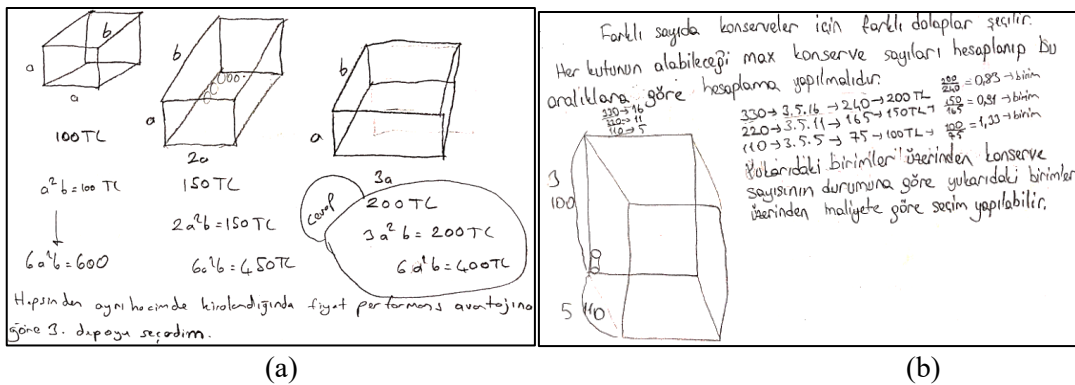 b
a
a
100TL
a²b = 100 TL
6a²b = 600
b
a
2a
150TL
2a²b = 150TL
6a²b = 450TL
b
a
3a
cevap
200TL
3a²b = 200TL
6a²b = 400TL
Hepsinden aynı hacimde kiralandığında fiyat performans avantajına
göre 3. depoyu seçerdim.
(a)
Farklı sayıda konserveler için farklı dolaplar seçilir.
Her kutunun alabileceği max konserve sayıları hesaplanıp bu
aralıklara göre hesaplama yapılmalıdır.
330→16
220→11
110→5
330→3.5.16→240→200TL→ 200/240=0,83→birim
220→3.5.11→165→150TL→ 150/165=0,91→birim
110→3.5.5→75→100TL→ 100/75=1,33→birim
Yukarıdaki birimler üzerinden konserve
sayısının durumuna göre yukarıdaki birimler
üzerinden maliyete göre seçim yapılabilir.
3
100
5 110
(b)